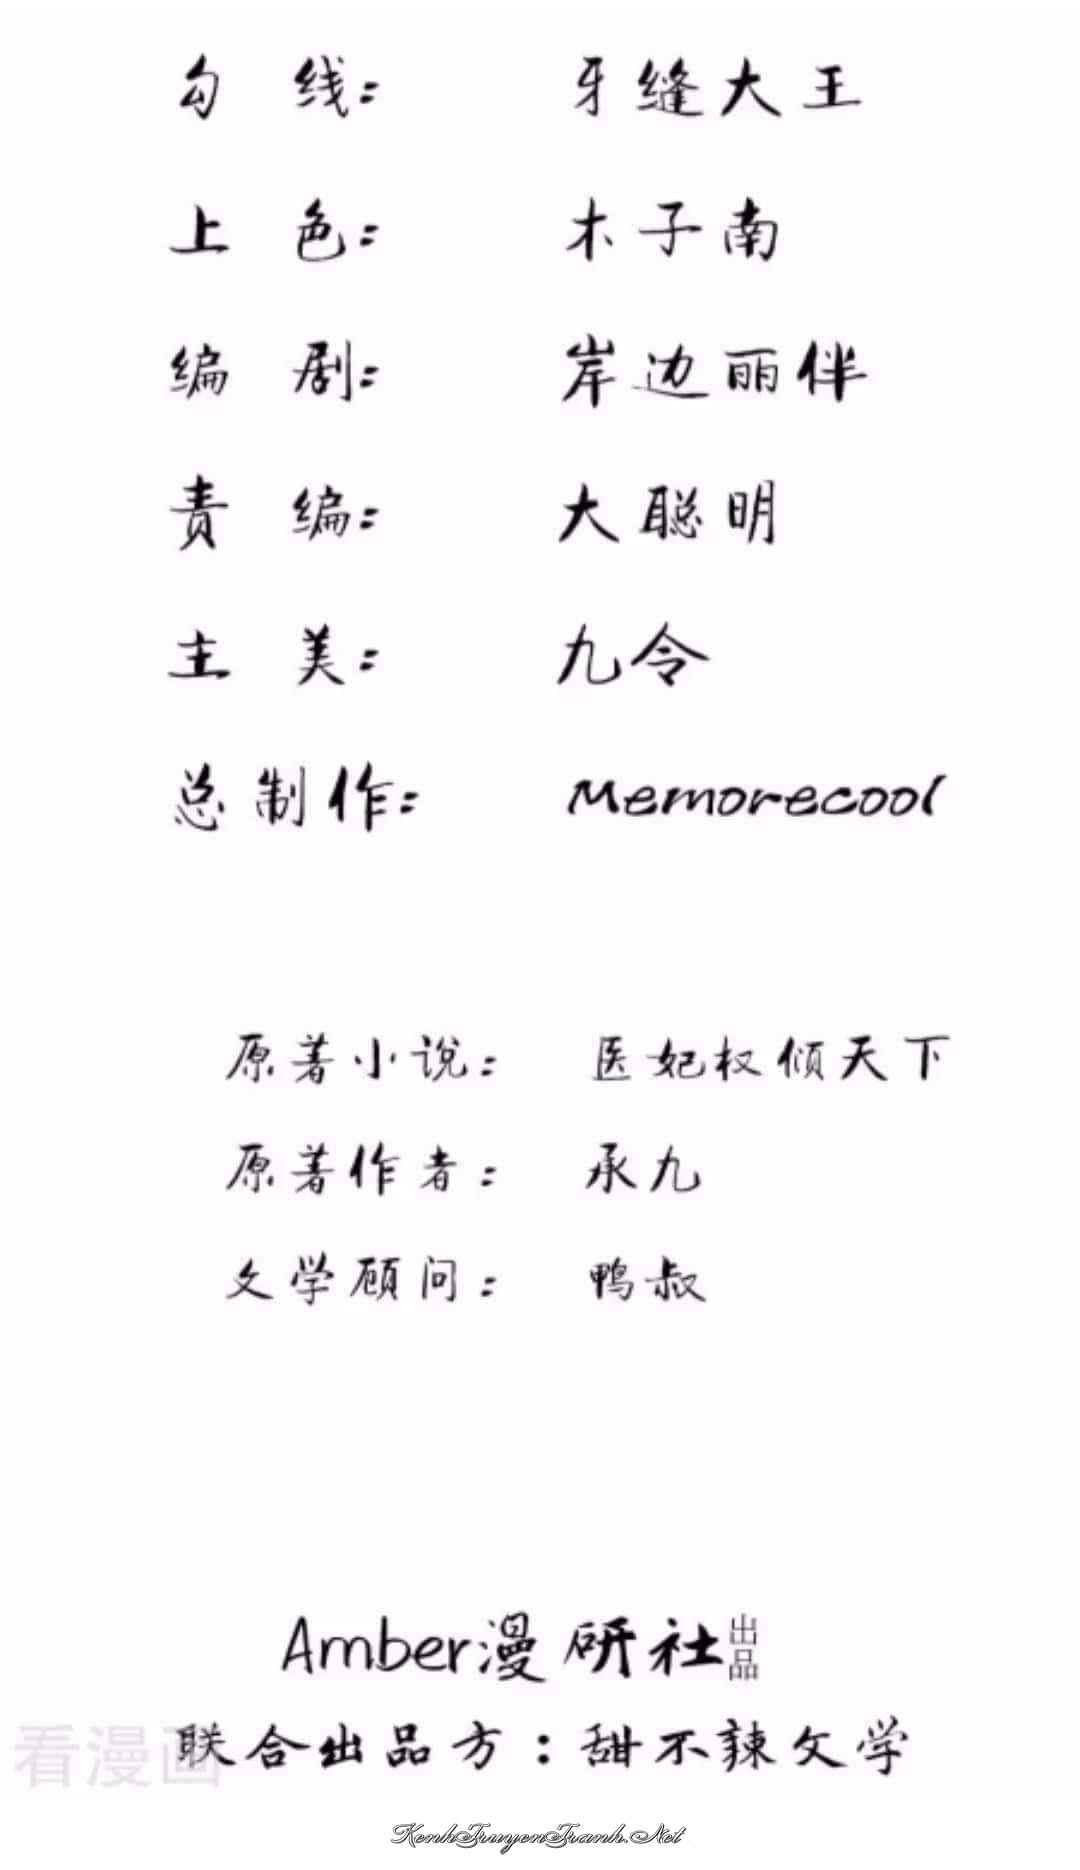 勾 线： 牙缝大王
上 色： 木子南
编 剧： 岸边丽伴
责 编： 大聪明
主 美： 九令
总制作： Memorecool
原著小说： 医妃权倾天下
原著作者： 承九
文学顾问： 鸭叔
Amber漫研社出品
联合出品方：甜不辣文学
看漫画
KenhTruyenTranh.Net